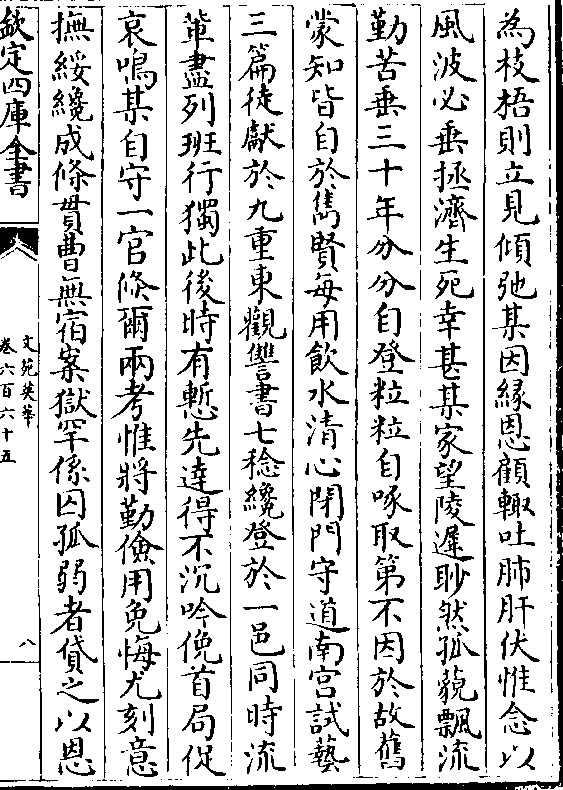 為枝梧則立見傾弛某因緣恩顧輙吐肺肝伏惟念以
風波必垂拯濟生死幸甚某家望陵遲眇然孤藐飄流
勤苦垂三十年分分自登粒粒自啄取第不因於故舊
蒙知皆自於雋賢每用飲水清心閉門守道南宮試藝
三篇徒獻於九重東觀讐書七稔纔登於一邑同時流
軰盡列班行獨此後時有慙先達得不沉吟俛首局促
哀鳴某自守一官倐爾兩考惟將勤儉用免悔尤刻意
撫綏纔成條貫曹無宿案獄罕係囚孤弱者貸之以恩
欽定四庫全書
文苑英華
卷六百六十五
八